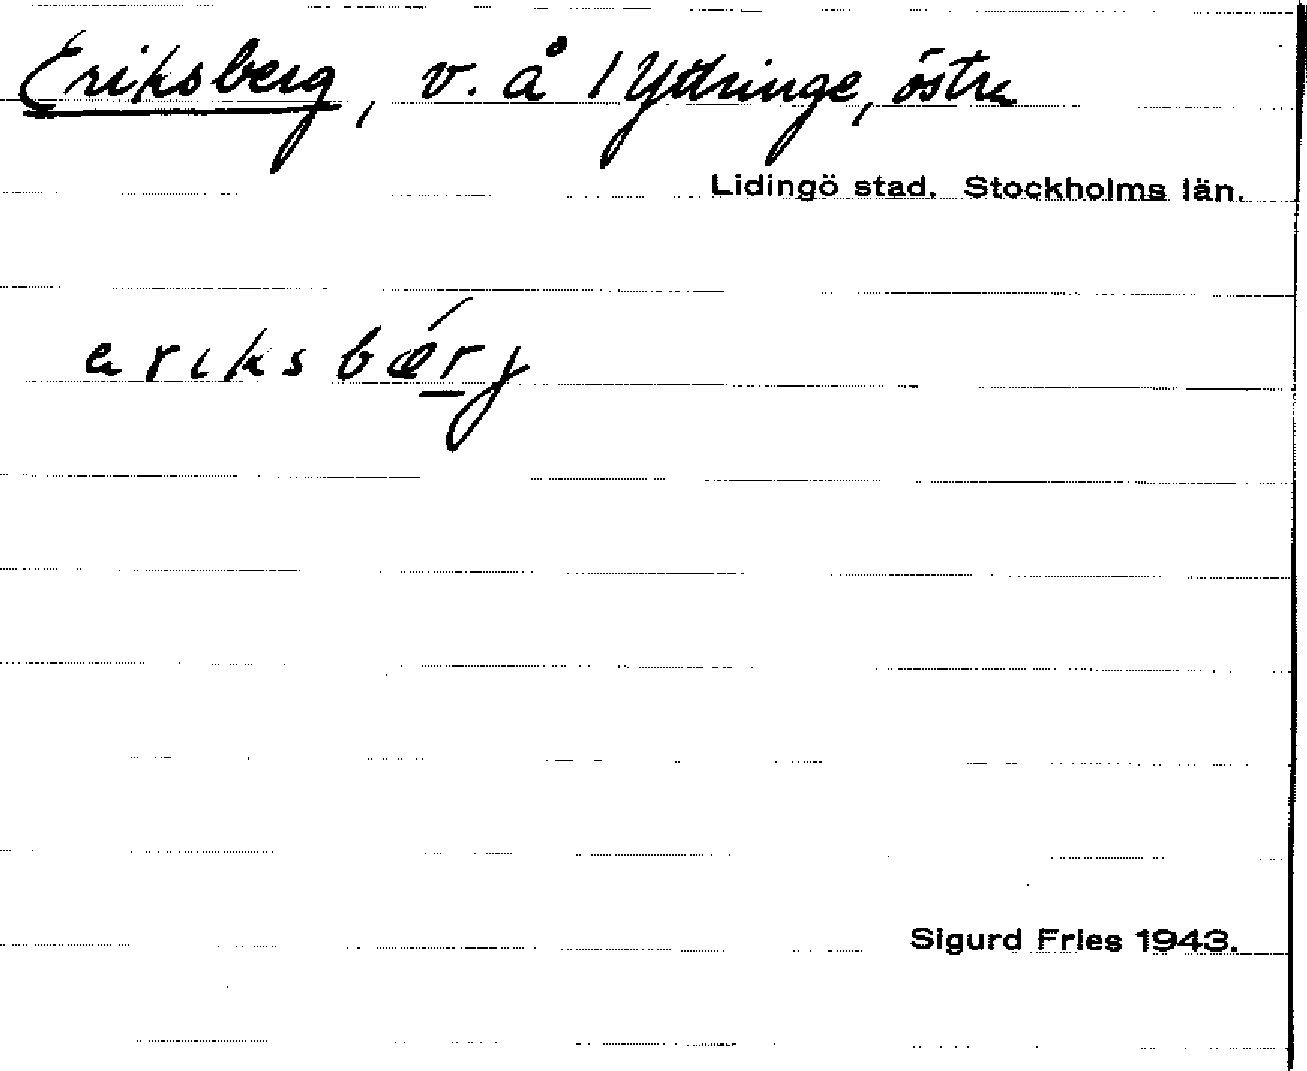 Eriksberg, v. å 1 Yttringe, östra
Lidingö stad. Stockholms län.
eriksbǽr̲j
Sigurd Fries 1943.